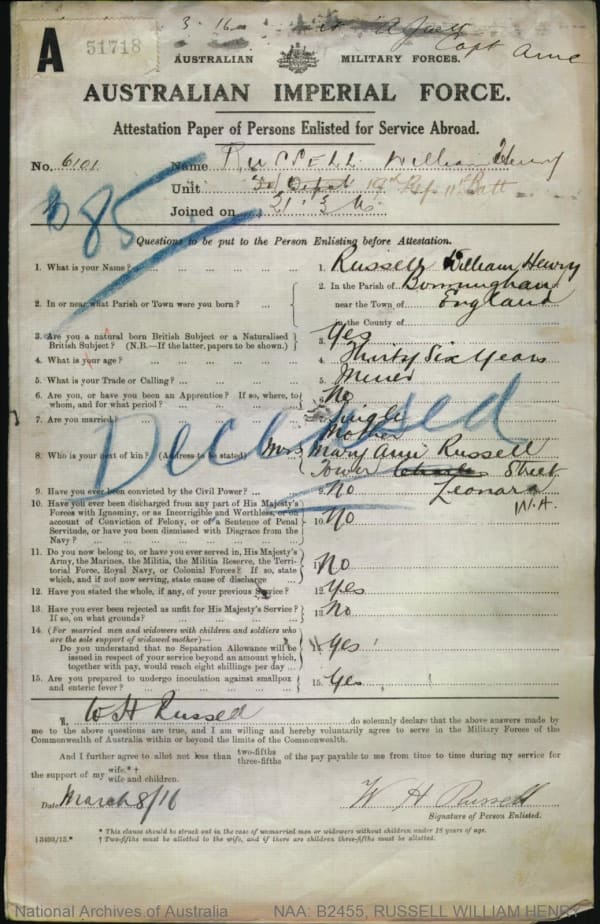 A
51718
3. 16
Capt
AUSTRALIAN MILITARY FORCES.
AUSTRALIAN IMPERIAL FORCE.
Attestation Paper of Persons Enlisted for Service Abroad.
No. 6101 Name RUSSELL William Henry
Unit Depot 19th Rfs 11th Batt
Joined on 21. 3. 16.
85
Questions to be put to the Person Enlisting before Attestation.
1. What is your Name? ... 1. Russell William Henry
2. In or near what Parish or Town were you born? ... 2. In the Parish of Birmingham
near the Town of England
in the County of
3. Are you a natural born British Subject or a Naturalised British Subject? (N.B.—If the latter, papers to be shown.) 3. Yes
4. What is your age? ... 4. Thirty Six Years
5. What is your Trade or Calling? ... 5. Miner
6. Are you, or have you been an Apprentice? If so, where, to whom, and for what period? ... 6. No
7. Are you married? Single
Deceased
8. Who is your next of kin? (Address to be stated) Mother
Mrs Mary Ann Russell
Tower Street
Leonora
W.A.
9. Have you ever been convicted by the Civil Power? ... 9. No
10. Have you ever been discharged from any part of His Majesty's Forces with Ignominy, or as Incorrigible and Worthless, or on account of Conviction of Felony, or of a Sentence of Penal Servitude, or have you been dismissed with Disgrace from the Navy? ... 10. No
11. Do you now belong to, or have you ever served in, His Majesty's Army, the Marines, the Militia, the Militia Reserve, the Territorial Force, Royal Navy, or Colonial Forces? If so, state which, and if not now serving, state cause of discharge 11. No
12. Have you stated the whole, if any, of your previous Service? 12. Yes
13. Have you ever been rejected as unfit for His Majesty's Service? If so, on what grounds? 13. No
14. (For married men and widowers with children and soldiers who are the sole support of widowed mother)—
Do you understand that no Separation Allowance will be issued in respect of your service beyond an amount which, together with pay, would reach eight shillings per day ... Yes
15. Are you prepared to undergo inoculation against smallpox and enteric fever? ... 15. Yes
I, W H Russell do solemnly declare that the above answers made by
me to the above questions are true, and I am willing and hereby voluntarily agree to serve in the Military Forces of the
Commonwealth of Australia within or beyond the limits of the Commonwealth.
And I further agree to allot not less than two-fifths three-fifths of the pay payable to me from time to time during my service for
the support of my wife.*† wife and children.
Date March 8/16
W H Russell
Signature of Person Enlisted.
†3493/15.* * This clause should be struck out in the case of unmarried men or widowers without children under 18 years of age.
† Two-fifths must be allotted to the wife, and if there are children three-fifths must be allotted.
National Archives of Australia NAA: B2455, RUSSELL WILLIAM HENRY